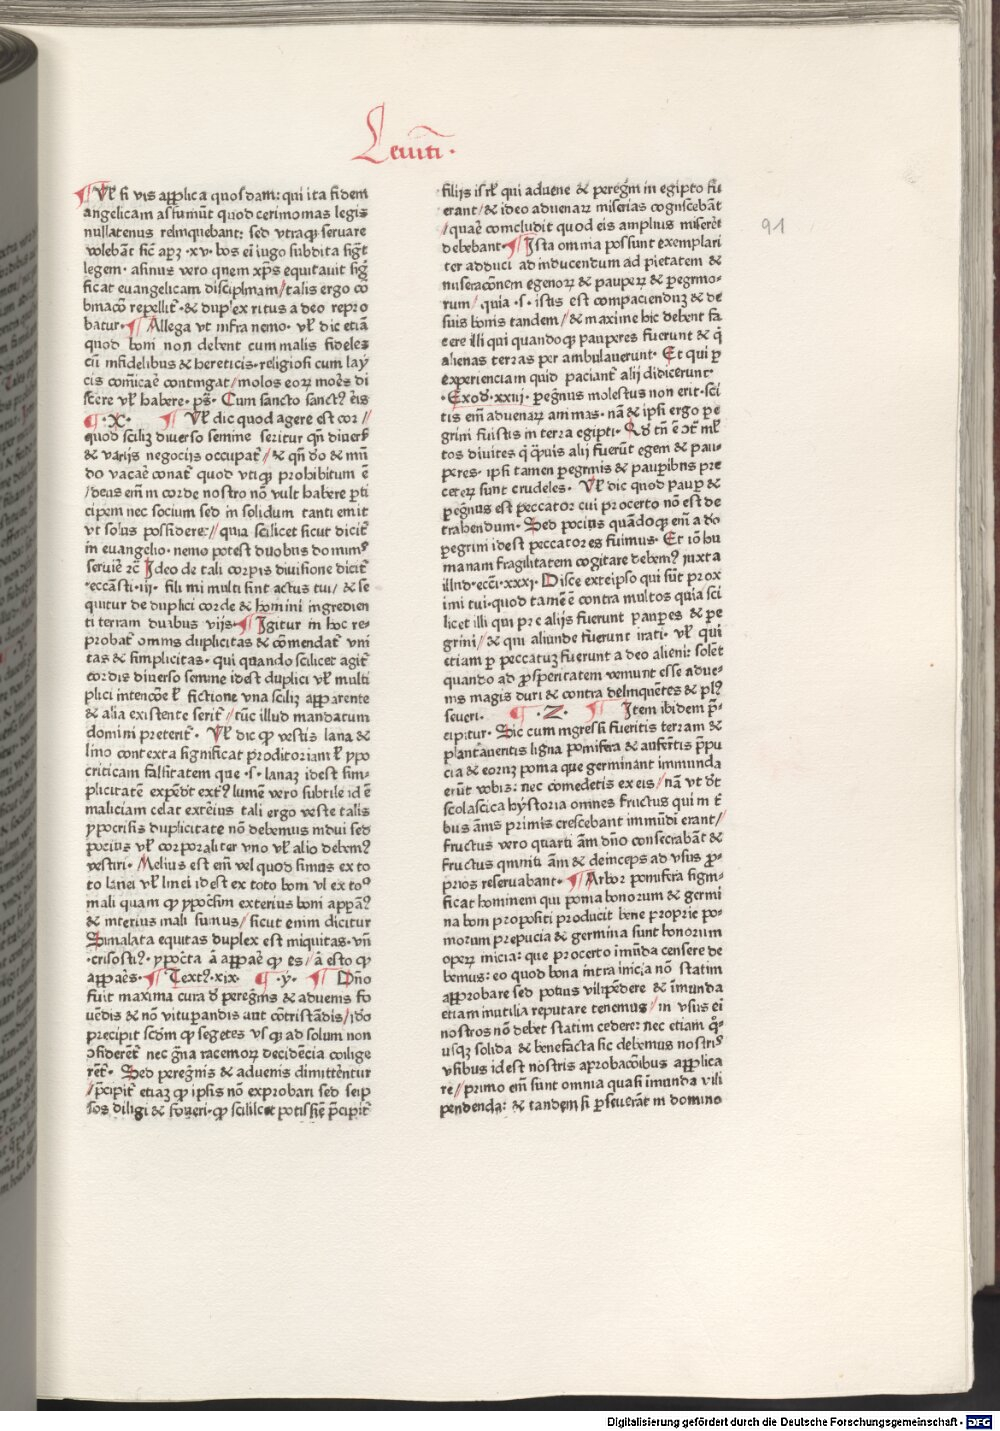 Leuiti̅ .
¶ Vl̕ si vis applica quosdam: qui ita fidem
angelicam assumūt quod cerimonias legis
nullatenus relinquebant: sed vtraqꝫ seruare
volebāt sic apꝫ .xv. bos ei iugo subdita sigt̄
legem. asinus vero quem xp̄s equitauit sigt̄
ficat euangelicam disciplinam/ talis ergo cō
binacō repellit̄. & duplex ritus a deo repro
batur. ¶ Allega vt infra nemo. vl̕ dic etiā
quod boni non debent cum malis fideles
cū infidelibus & hereticis. religiosi cum lay
cis com̄icāe contingat/ molos eoꝝ moēs di
scere vl̕ habere. ps̄. Cum sancto sanctꝰ eis
¶ .X. ¶ Vl̕ dic quod agere est cor //
quod sciliꝫ diuerso semine seritur qn̄ diuers̄
& varijs negocijs occupat̄ // & qn̄ dō & mū
do vacāe conat̄ quod vtiqꝫ prohibitum ē
/deus em̄ in corde nostro nō vult habere p̄ti
cipem nec socium sed in solidum tanti emit
vt solus possidere: // quia scilicet sicut dicit̄
in euangelio. nemo potest duobus dominꝭ
seruiē ꝛc̄ Ideo de tali corꝑis diuisione dicit̄
.eccāsti.ij. fili mi multi sint actus tui/ & se
quitur de duplici corde & homini ingredien
ti terram duabus vijs. ¶ Igitur in hoc re-
probat̄ omnis duplicitas & cōmendat̄ vni
tas & simplicitas. qui quando scilicet agit̄
cordis diuerso semine idest duplici vl̕ multi
plici intencōe l̕ fictione vna sciliꝫ apparente
& alia existente serit̄ / tūc illud mandatum
domini preterit̄. Vl̕ dic qꝫ vestis lana &
lino contexta significat proditoriam l̕ ypo
criticam fallitatem que .s. lanaꝫ idest sim-
plicitatē expēdt̄ extꝰ lumē vero subtile id ē
maliciam celat exterius tali ergo veste talis
ypocrisis duplicitate nō debemus indui sed
pocius vl̕ corporaliter vno vl̕ alio debemꝰ
vestiri. Melius est em̄ vel quod simus ex to
to lanei vl̕ linei idest ex toto boni vl ex to°
mali quam qꝫ ypoc̄sim exterius boni appāꝰ
& interius mali sumus/ sicut enim dicitur
Simalata equitas duplex est iniquitas. vn̄
.crisostiꝰ. ypoc̄ta ā appāē qꝫ es/ ā esto qꝫ
appāēs. ¶ Textꝰ .xix. ¶ .y. ¶ Dn̄o
fuit maxima cura ꝺ peregīs & aduenis fo
uēdis & nō vitupandis aut cōtristādis/ idō
precipit scdm qꝫ segetes vsqꝫ ad solum non
ↄsiderēt̄ nec gn̄a racemoꝝ decidēcia collige
rēt̄. Sed peregīs & aduenis dimittētur
/p̄cipit̄ etiaꝫ qꝫ ipsis nō exprobari sed seip
sos diligi & foueri. qꝫ scilicet potissiē p̄cipit̄
filijs isrl̕ qui aduene & peregm̄ in egipto fu
erant/ & ideo aduenaꝝ miserias cognscebāt
/quaē concludit quod eis amplius miserēt
debebant. ¶ Ista omnia possunt exemplari
ter adduci ad inducendum ad pietatem &
miseracōnem egenoꝝ & pauperꝝ & peregrino-
rum/ quia .s. istis est compaciendꝫ & de
suis bonis tandem/ & maxime hic debent fa
cere illi qui quandoqꝫ pauperes fuerunt & q̄
alienas terras per ambulauerunt. Et qui ꝑ
experienciam quid paciant̄ alij didicerunt.
.Exod.xxiij. peregrīus molestus non erit. sci
tis em̄ aduenaꝝ animas. nā & ipsi ergo pe
grini fuistis in terra egipti. Qd̄ tn̄ ē ↄt̄ ml̕
tos diuites q̄ quis alij fuerūt egeni & pau-
peres. ipsi tamen peregrinis & pauꝑibus pre
ceteꝝ sunt crudeles. Vl̕ dic quod paup̄ &
peregrīus est peccator cui procerto nō est de
trahendum. Sed pocius quādoqꝫ em̄ a dō
peregrini idest peccatores fuimus. Et iō hu
manam fragilitatem cogitare debemꝰ iuxta
illud .ecci.xxxj. Disce exteipso qui sūt prox
imi tui. quod tamē ē contra multos quia sci
licet illi qui pre alijs fuerunt pauꝑes & pe
grini/ & qui aliunde fuerunt irati. vl̕ qui
etiam ꝑ peccatuꝫ fuerunt a deo alieni: solēt
quando ad ꝓsperitatem veniunt esse adue-
nis magis duri & contra delinquētes & pl̕ꝰ
seueri. ¶ .Z. ¶ Item ibidem p̄-
cipitur. Sic cum ingressi fueritis terram &
plantaueritis ligna pomifera & aufertis p̄pu
cia & eoruꝫ poma que germinant immunda
erūt vobis: nec comedetis ex eis/ nā vt ꝺt̄
scolascica hystoria omnes fructus qui in t̄
bus ānis primis crescebant immūdi erant//
Fructus vero quarti ām dn̄o consecrabāt &
fructus quinti ām & deinceps ad vsus ꝓ-
prios reseruabant. ¶ Arbor pomifera signi-
ficat hominem qui poma bonorum & germi
na boni propositi producit bene proprie po-
morum prepucia & germina sunt bonorum
operꝫ inicia: que procerto imūda censere de
bemus: eo quod bona intra inicia nō statim
approbare sed potius vilipēdere & īmunda
etiam inutilia reputare tenemus/ in vsus ei
nostros nō debet statim cedere: nec etiam q̄-
usqꝫ solida & benefacta sic debemus nostriꝰ
vsibus idest nostris aprobacōibus applica
re// primo em̄ sunt omnia quasi īmunda vili
pendenda: & tandem si perseuerāt in domino
91
Digitalisierung gefördert durch die Deutsche Forschungsgemeinschaft - DFG